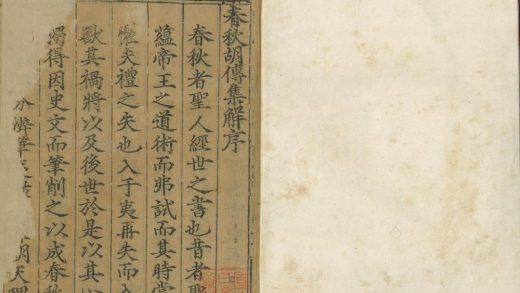 春秋胡傳集解序
春秋者聖人經世之書也昔者聖
蘊帝王之道術而弗試而其時當
懼夫禮之失也入于夷再失而入
獸其禍將以及後世於是以其
得因史文而筆削之以成春秋
月天理